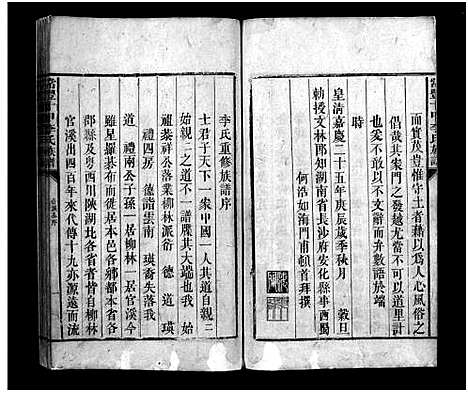 而實茂豈惟守土者藉以爲人心風俗之
倡哉其案門之發越尤當不可以道里計
也愚不敢以不文辭而弁數語於端
時
皇清嘉慶二十五年庚辰歲季秋月 穀旦
勅授文林郎知湖南省長沙府安化縣事西蜀
何浩如海門甫頓首拜撰
李氏重修族譜序
士君子天下一家中國一人其道自親二
始親二之道不一譜其大端也我 始
祖榮祥公落業柳林派衍 德 道 瑛
禮四房 德詣雲南 瑛裔失落我
道 禮兩公子孫一居柳林一居官溪今
雖星羅碁布而徙居本邑各鄉都本省各
郡縣及粤西川陝湖北各省者皆自柳林
官溪出四百年來代傳十九亦源遠而流